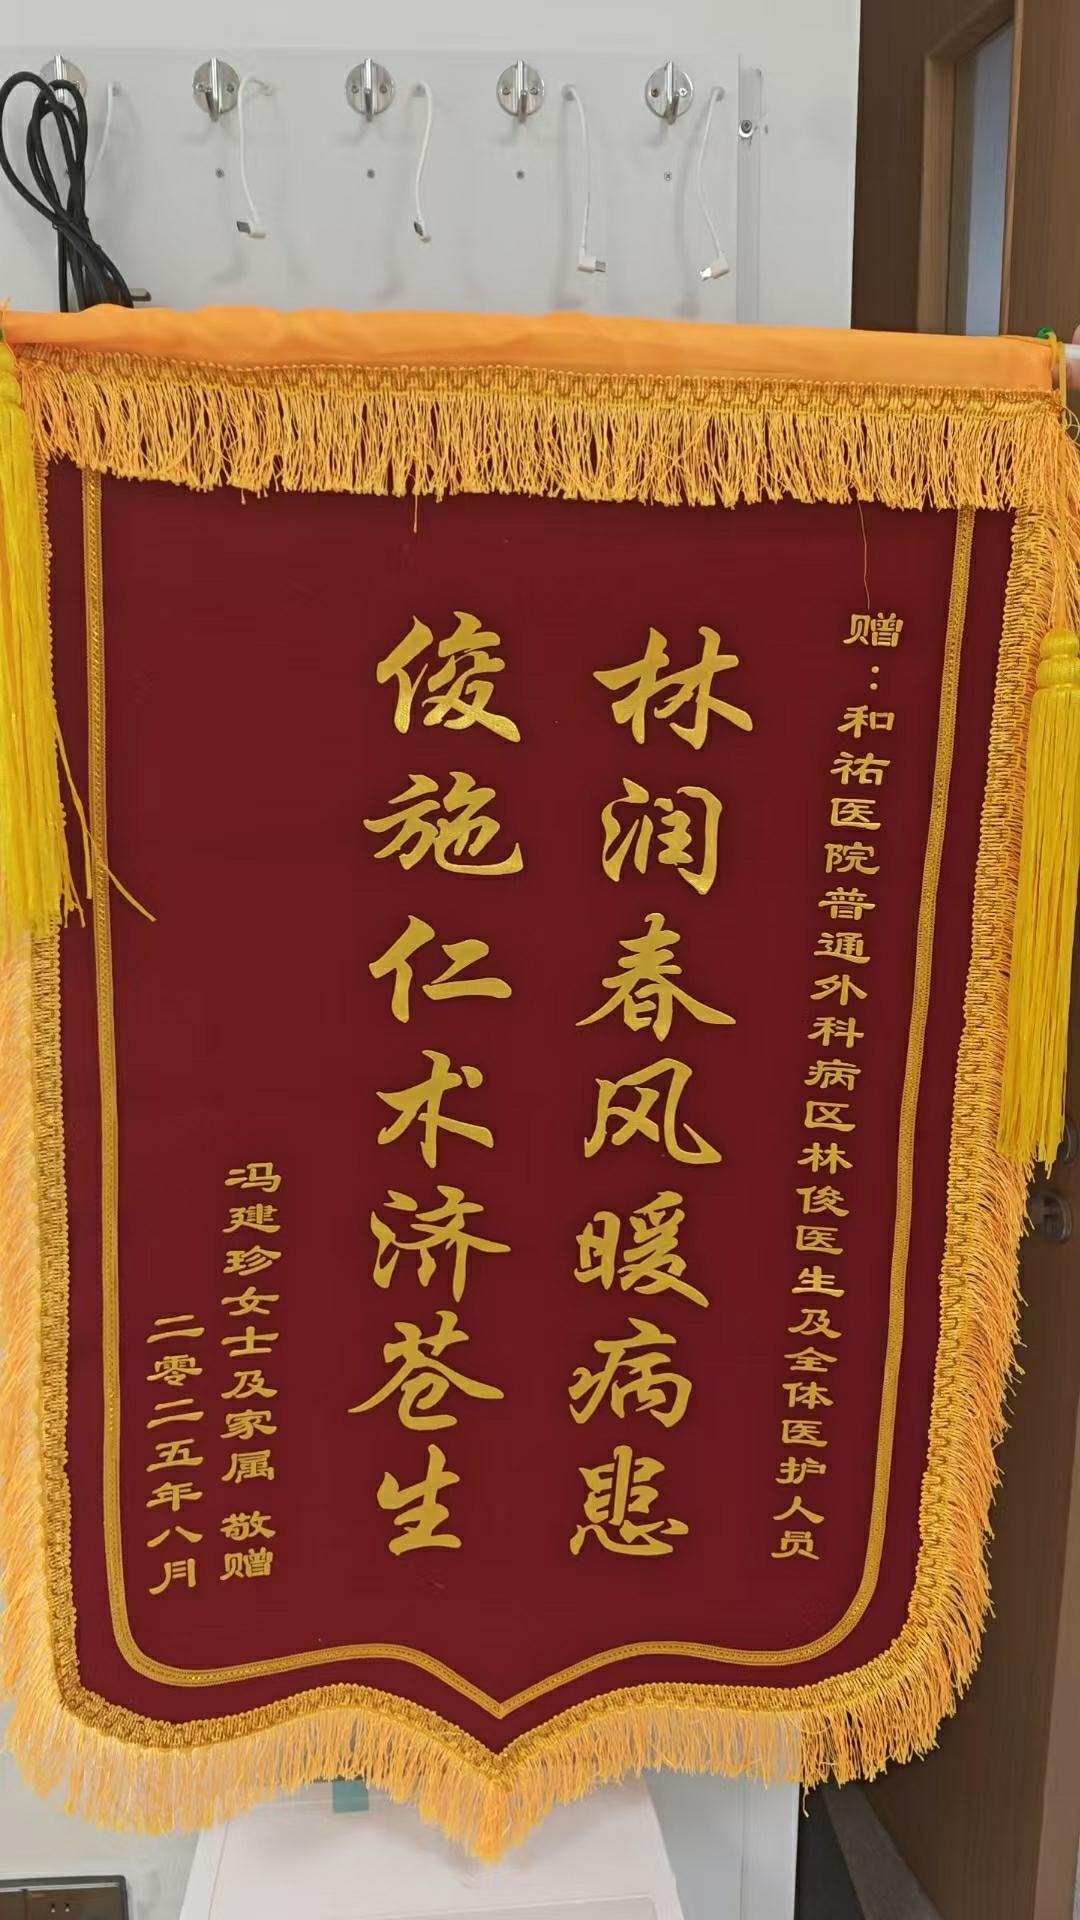 赠：和祐医院普通外科病区林俊医生及全体医护人员
林润春风暖病患
俊施仁术济苍生
冯建珍女士及家属 敬赠
二零二五年八月